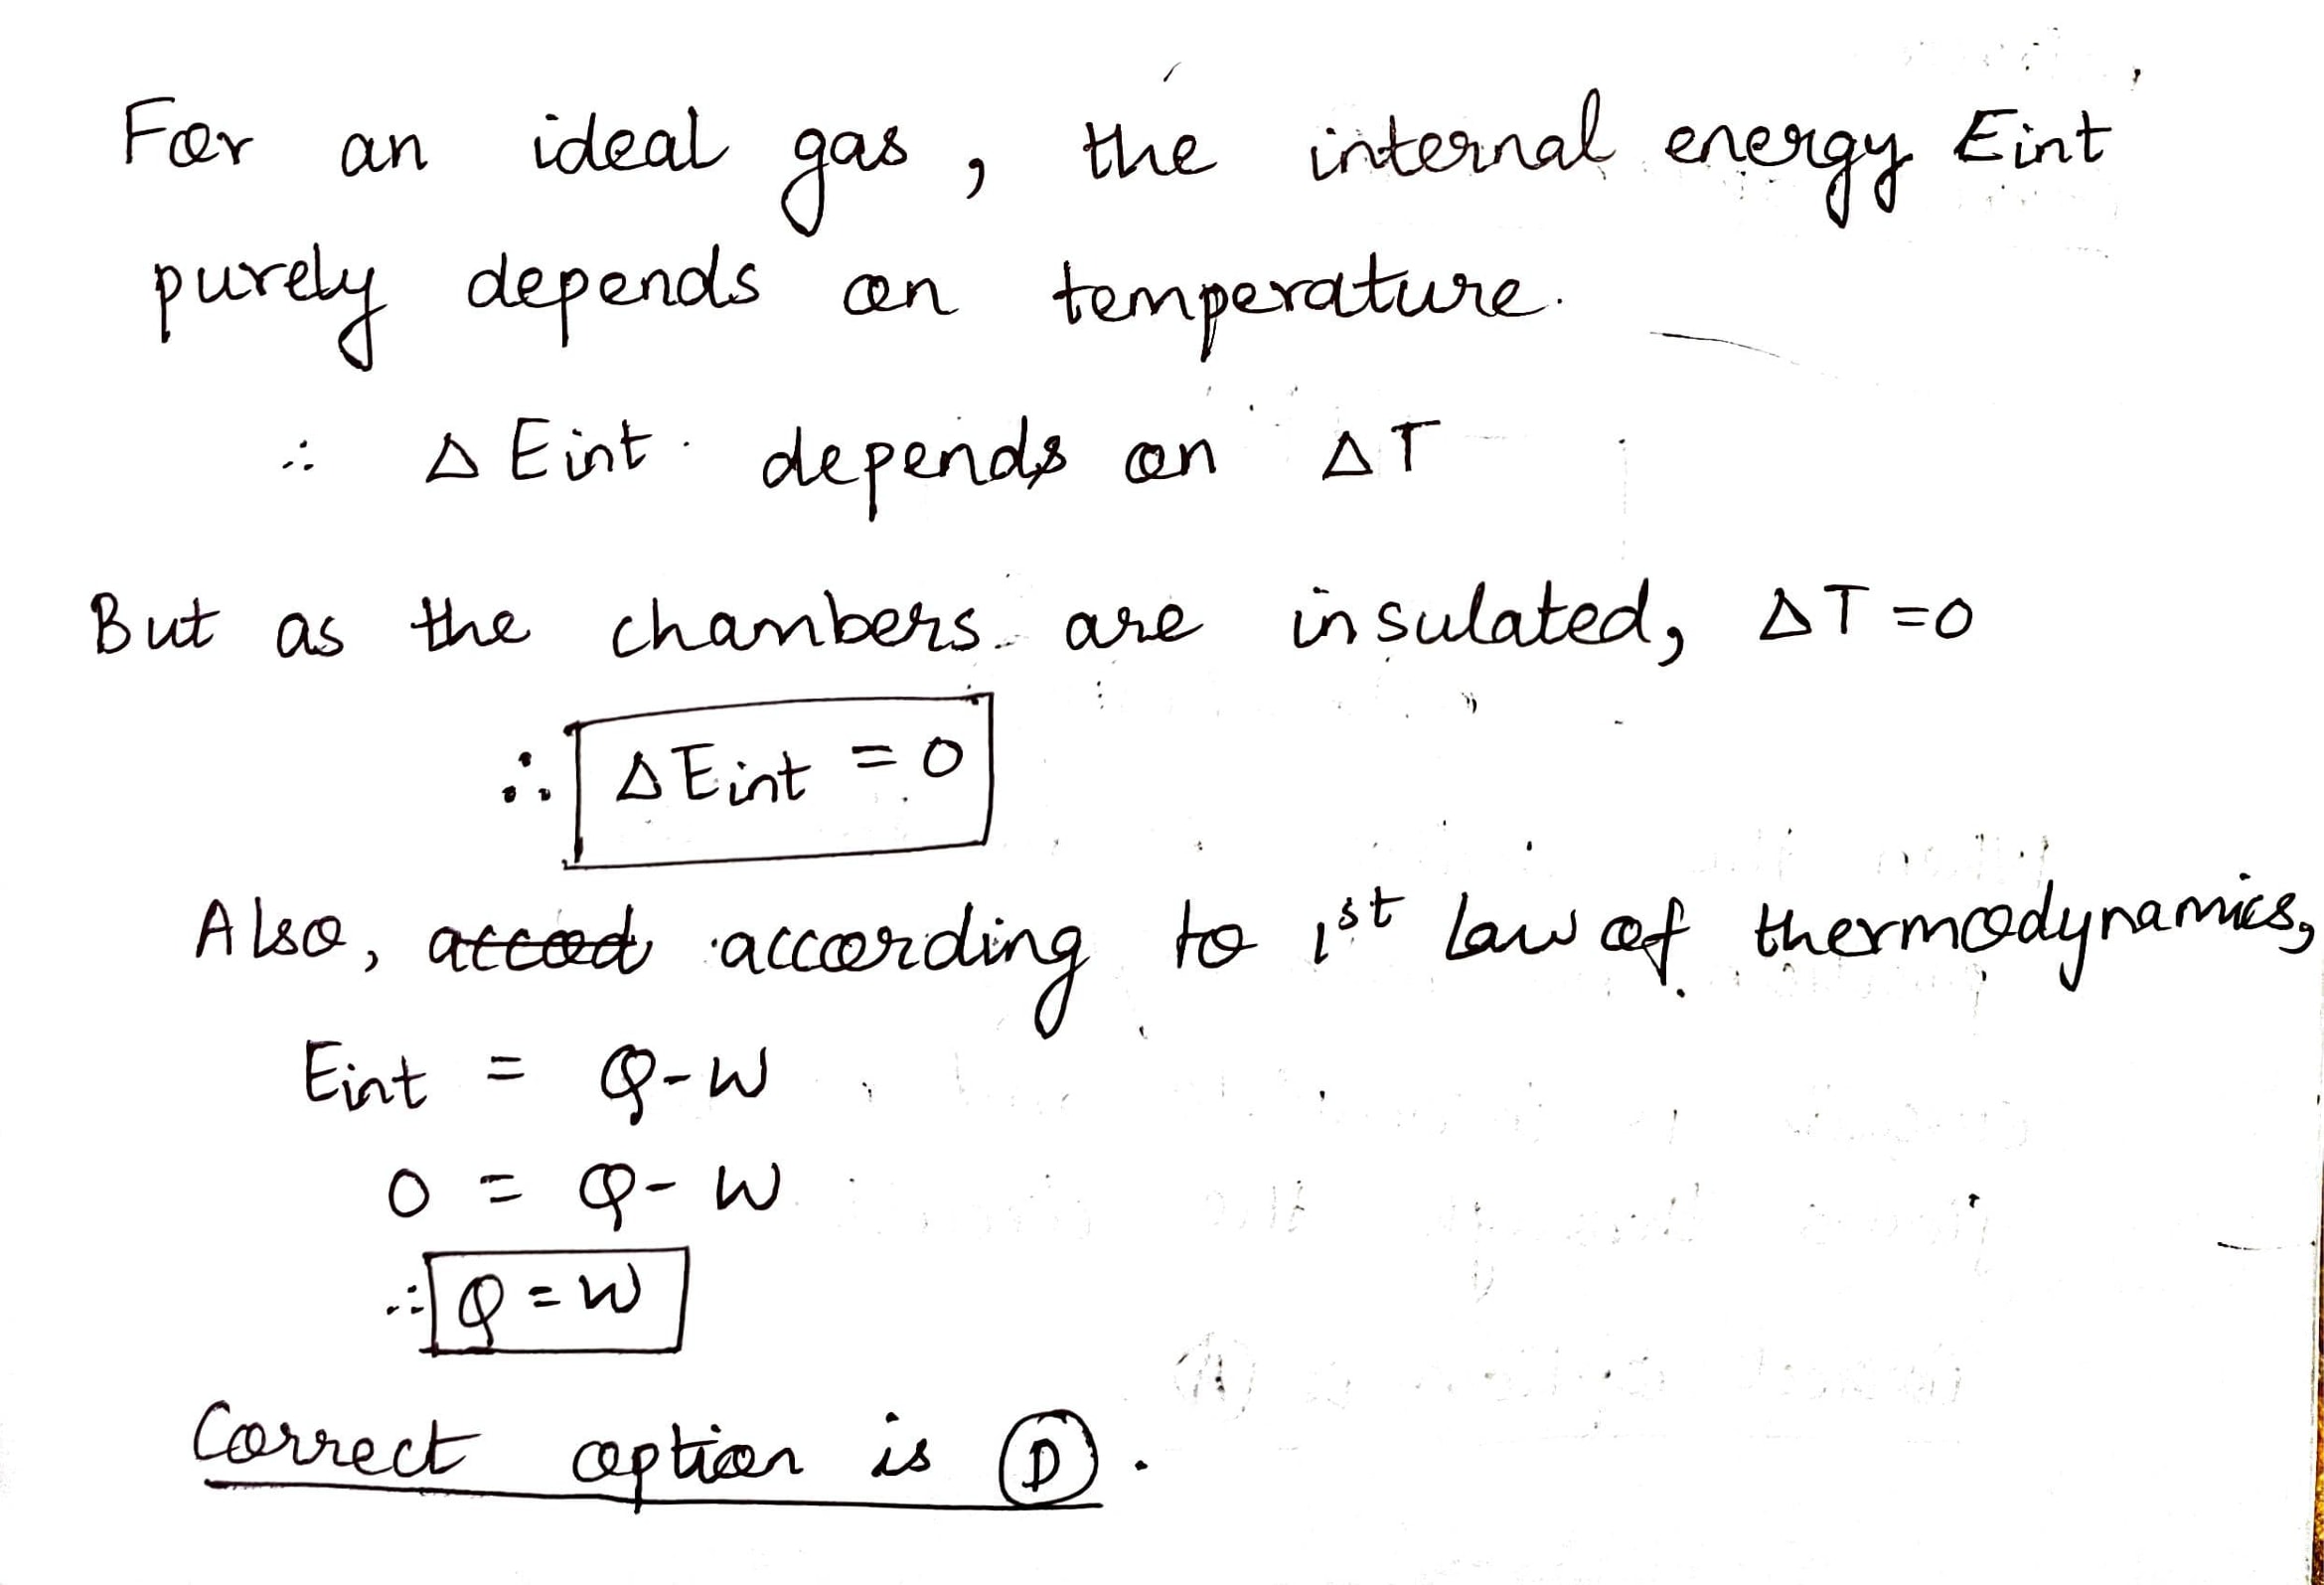 For an ideal gas, the internal energy Eint
purely depends on temperature.
∴ Δ Eint depends on ΔT
But as the chambers are insulated, ΔT=0
∴ Δ Eint = 0
Also, accod according to 1st law of thermodynamics,
Eint = Q-W
0 = Q-W
∴ Q=W
Correct option is D.